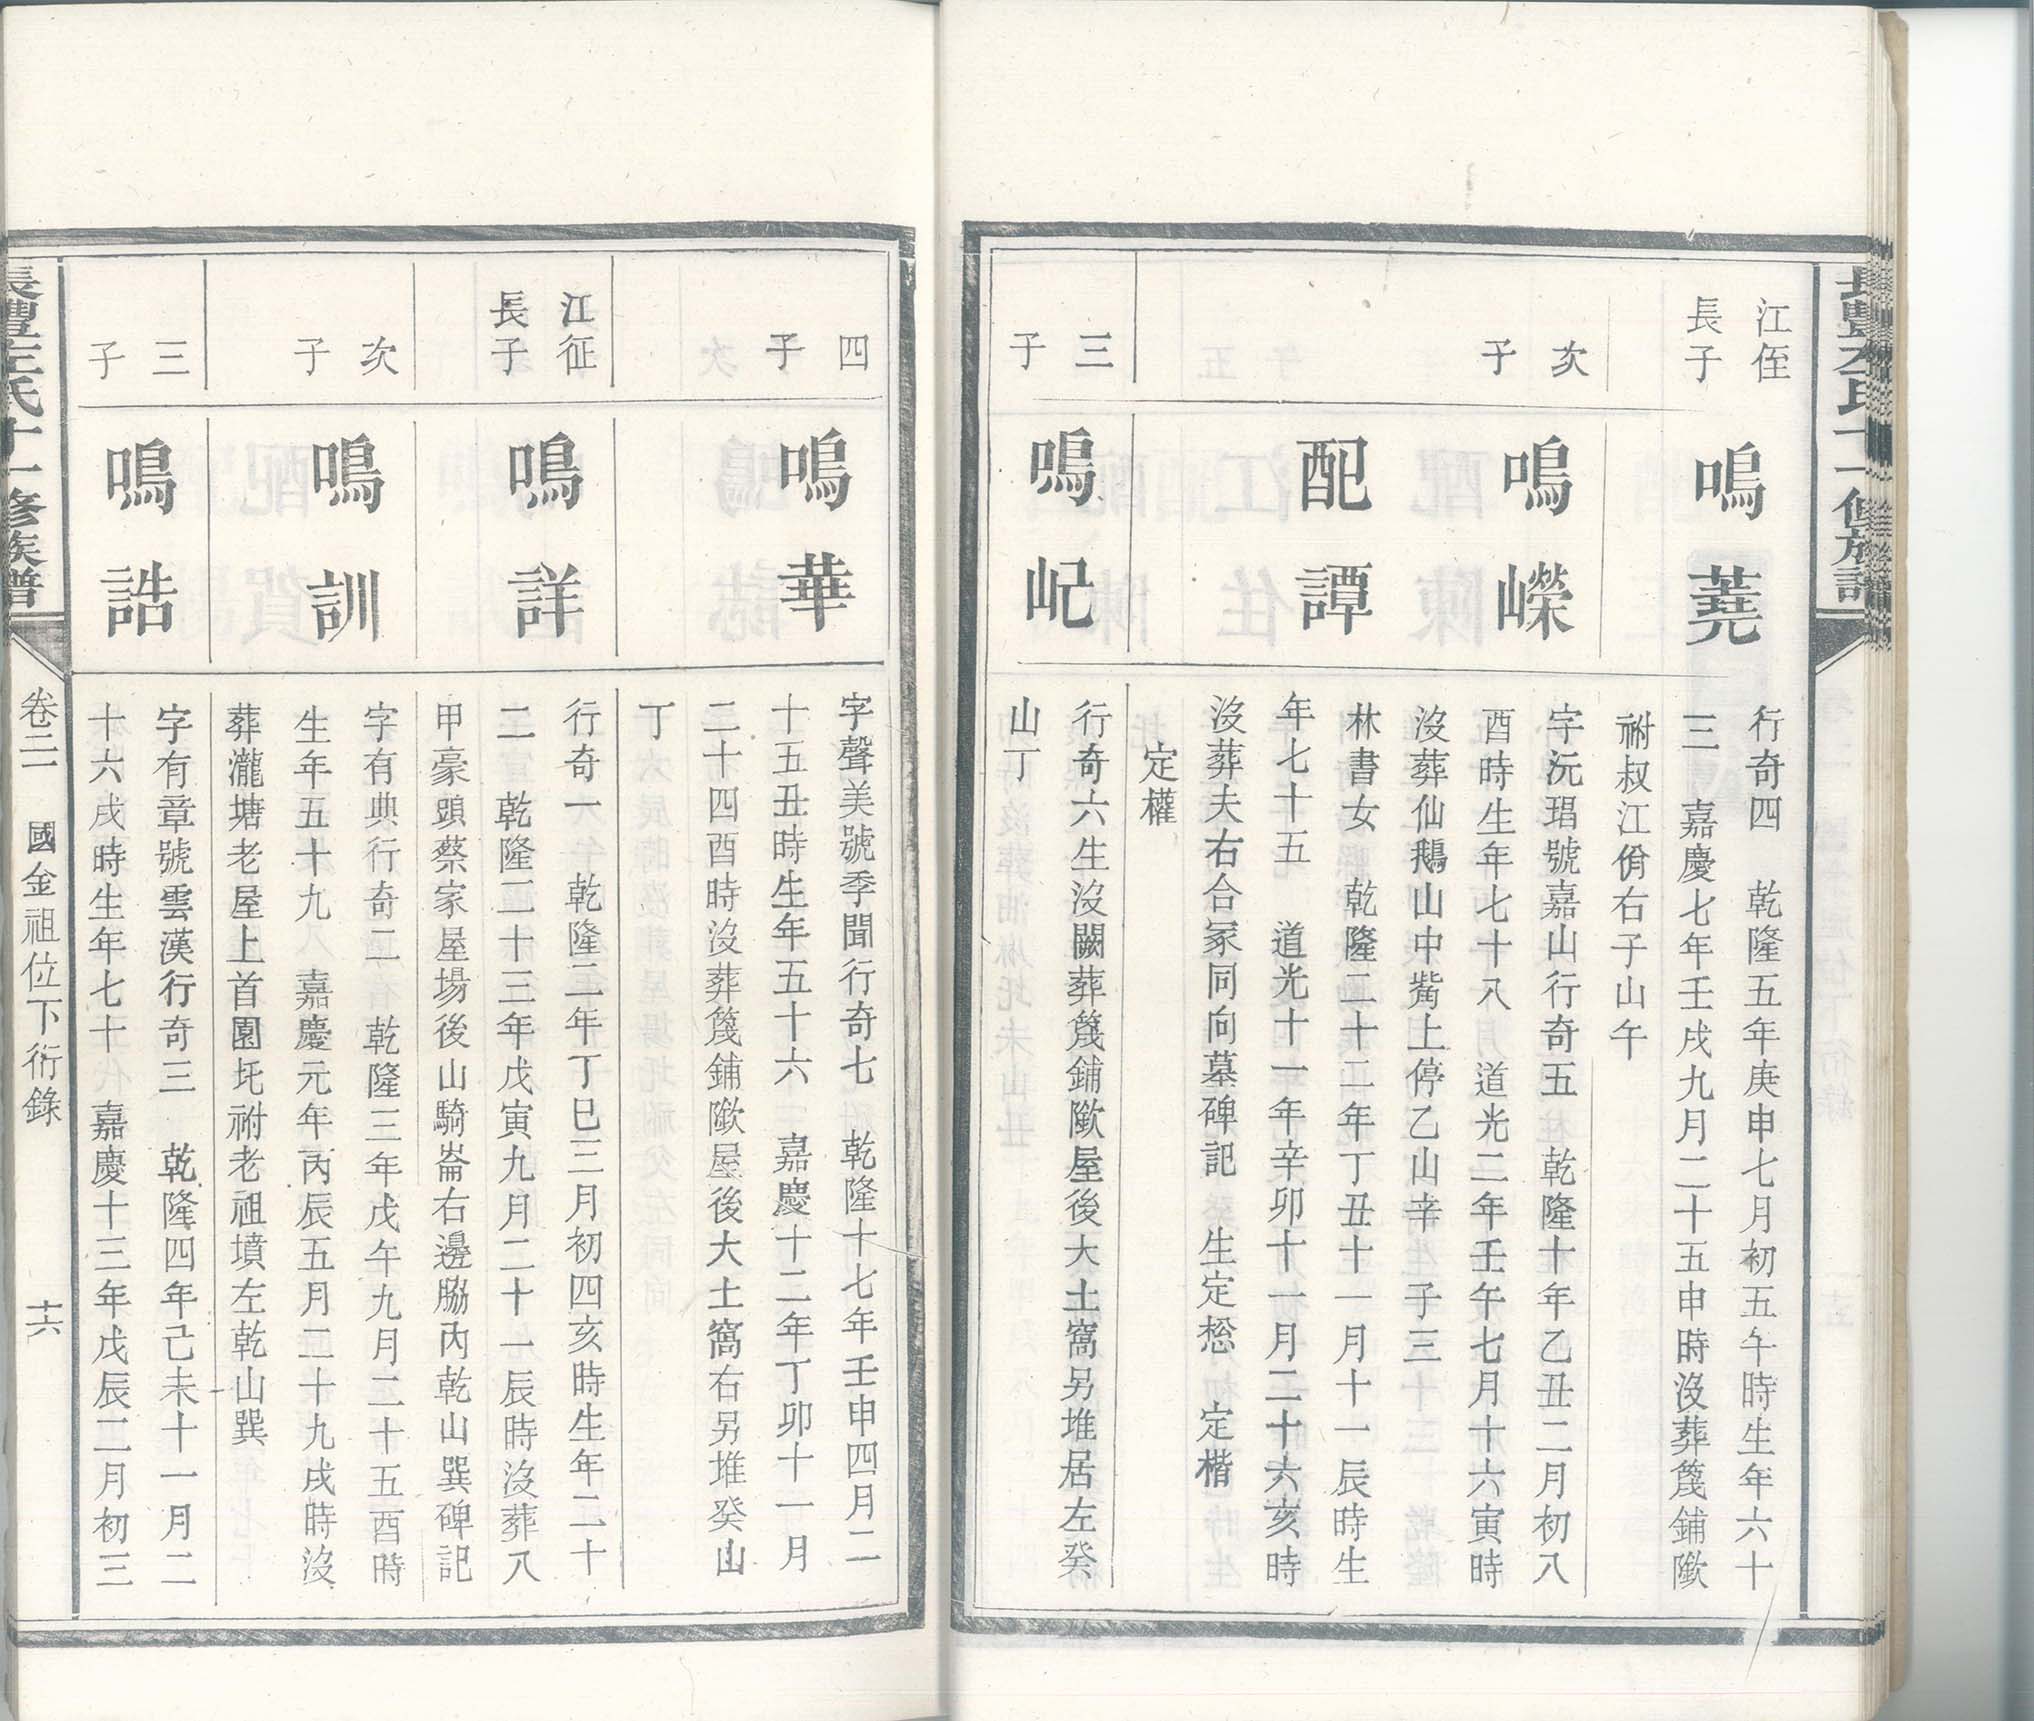 長豐左氏十一修族譜
江侄
長子
鳴蕘
行奇四　乾隆五年庚申七月初五午時生年六十
三　嘉慶七年壬戌九月二十五申時沒葬篾鋪隞
祔叔江佾右子山午
次
子
鳴嶸
字沅琩號嘉山行奇五　乾隆十年乙丑二月初八
酉時生年七十八　道光二年壬午七月十六寅時
沒葬仙鵝山中觜上停乙山辛　子三
配譚
林書女　乾隆二十二年丁丑十一月十一辰時生
年七十五　道光十一年辛卯十一月二十六亥時
沒葬夫右合冢同向墓碑記　生定棇　定楷
定權
三
子
鳴屺
行奇六生沒闕葬篾鋪隞屋後大土窩另堆居左癸
山丁
四
子
鳴華
字聲美號季聞行奇七　乾隆十七年壬申四月二
十五丑時生年五十六　嘉慶十二年丁卯十一月
二十四酉時沒葬篾鋪隞屋後大土窩右另堆癸山
丁
江征
長子
鳴詳
行奇一　乾隆二年丁巳三月初四亥時生年二十
二　乾隆二十三年戊寅九月二十一辰時沒葬八
甲豪頭蔡家屋場後山騎崙右邊脇內乾山巽碑記
次
子
鳴訓
字有典行奇二　乾隆三年戊午九月二十五酉時
生年五十九　嘉慶元年丙辰五月二十九戌時沒
葬瀧塘老屋上首園圫祔老祖墳左乾山巽
三
子
鳴誥
字有章號雲漢行奇三　乾隆四年己未十一月二
十六戌時生年七十　嘉慶十三年戊辰二月初三
長豐左氏十一修族譜
卷二　國金祖位下衍錄　十六